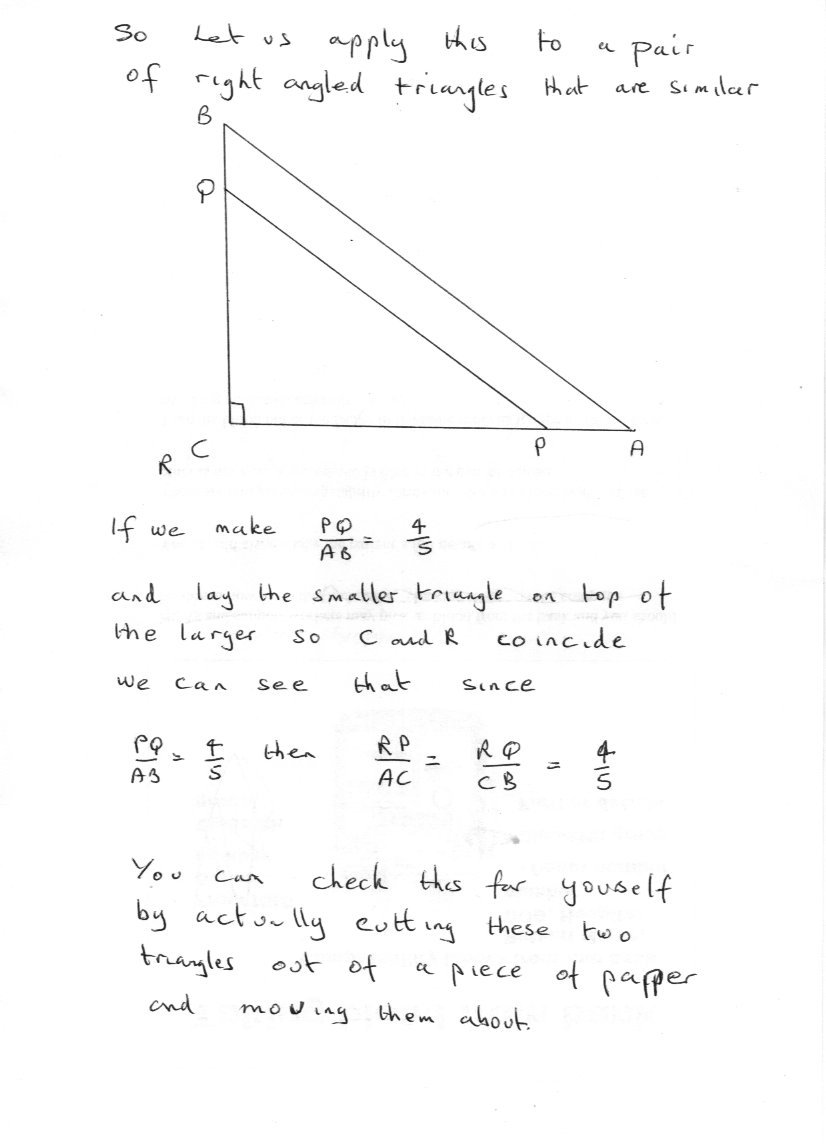 So Let us apply this to a pair
of right angled triangles that are similar
B
Q
C
R
P
A
If we make PQ/AB = 4/5
and lay the smaller triangle on top of
the larger so C and R coincide
we can see that since
PQ/AB = 4/5 then RP/AC = RQ/CB = 4/5
You can check this for youself
by actually cutting these two
triangles out of a piece of papper
and moving them about.